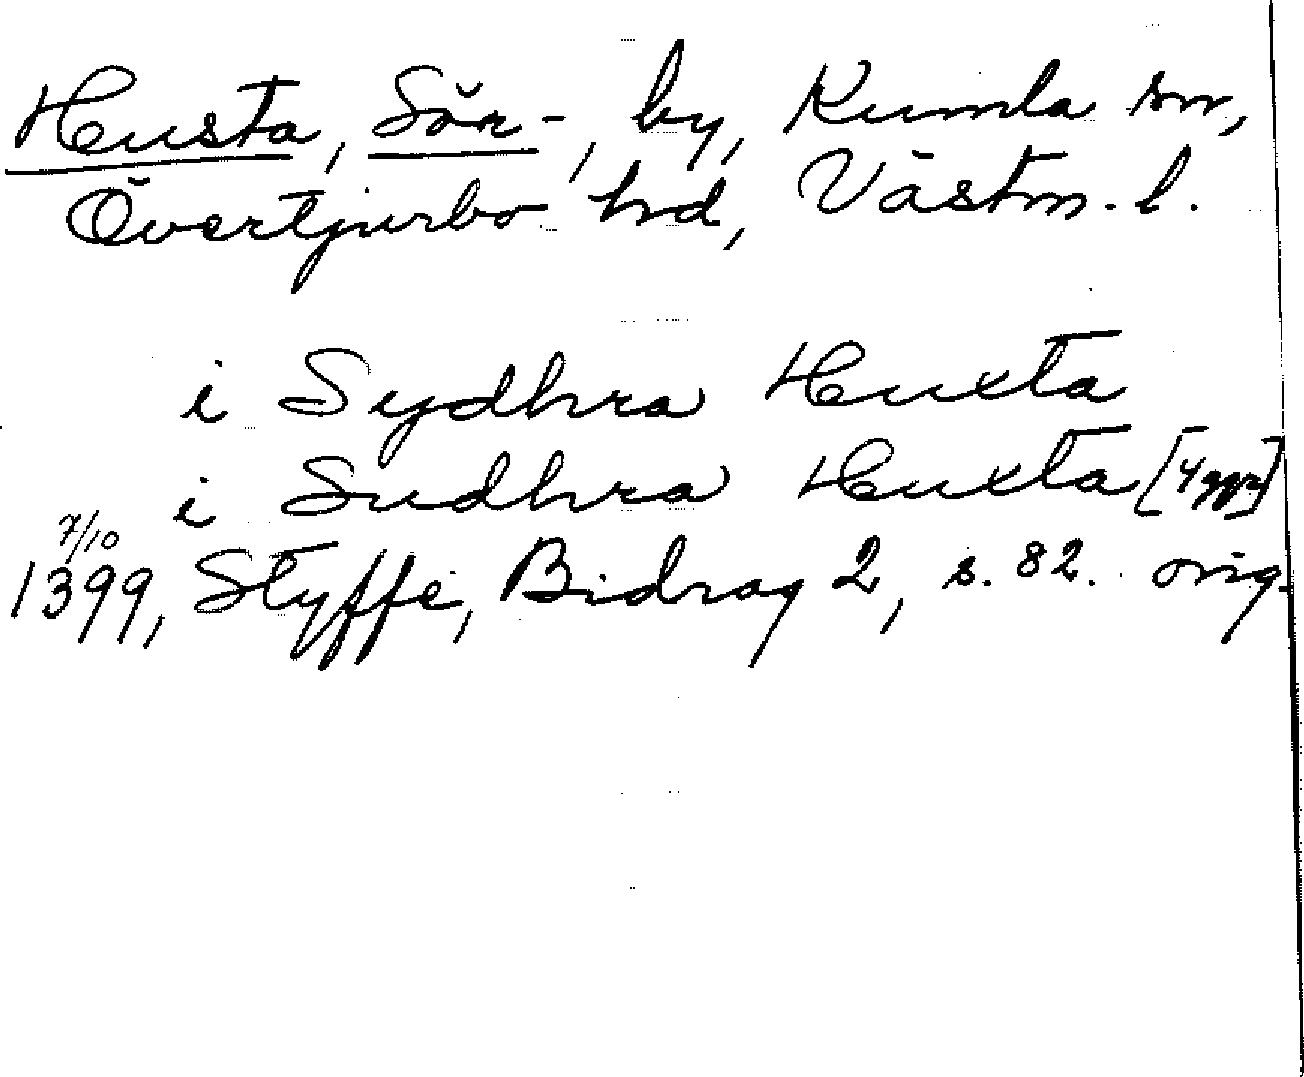 Husta, Sör-, by, Kumla sn,
Övertjurbo hd, Västm. l.
i Sydhra Huxta
i Sudhra Huxta [4 ggr]
7/10
1399, Styffe, Bidrag 2, s. 82. orig.